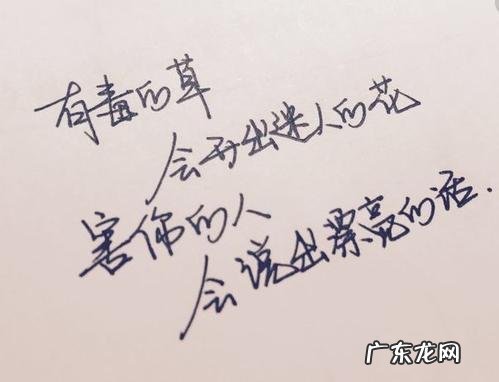 有毒的草
会开出迷人的花
害你的人
会说出票亮的话.
广东龙网